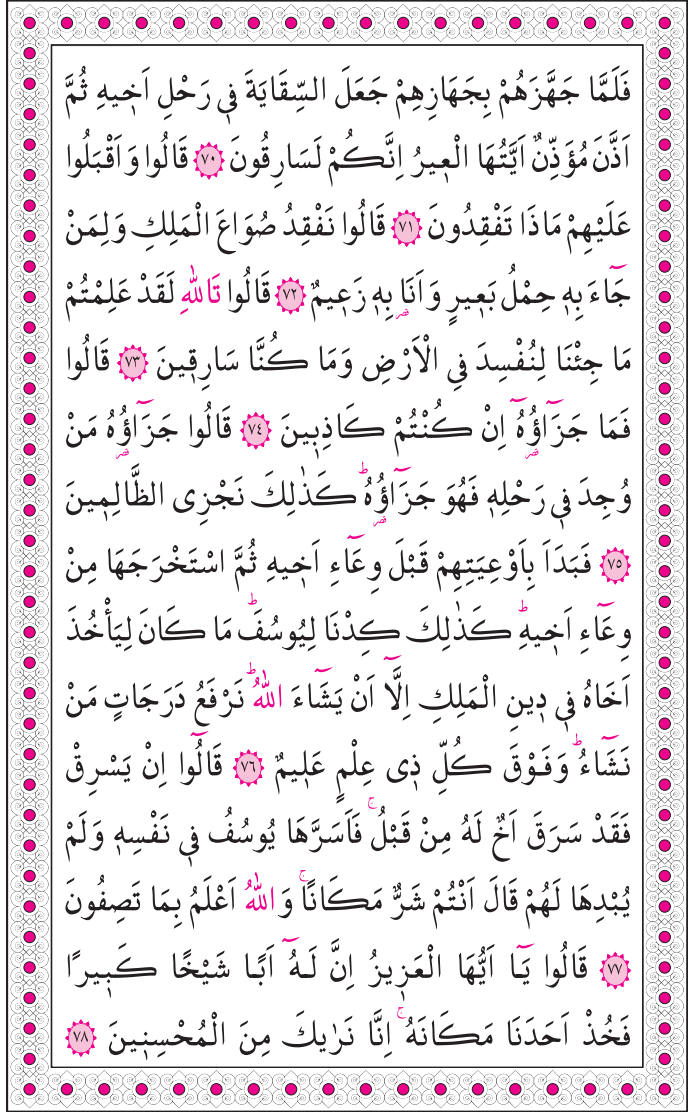 فَلَمَّا جَهَّزَهُمْ بِجَهَازِهِمْ جَعَلَ السِّقَايَةَ ف۪ي رَحْلِ اَخ۪يهِ ثُمَّ
اَذَّنَ مُؤَذِّنٌ اَيَّتُهَا الْع۪يرُ اِنَّكُمْ لَسَارِقُونَ ﴿٧٠﴾ قَالُوا وَاَقْبَلُوا
عَلَيْهِمْ مَاذَا تَفْقِدُونَ ﴿٧١﴾ قَالُوا نَفْقِدُ صُوَاعَ الْمَلِكِ وَلِمَنْ
جَٓاءَ بِه۪ حِمْلُ بَع۪يرٍ وَاَنَا۬ بِه۪ زَع۪يمٌ ﴿٧٢﴾ قَالُوا تَاللّٰهِ لَقَدْ عَلِمْتُمْ
مَا جِئْنَا لِنُفْسِدَ فِي الْاَرْضِ وَمَا كُنَّا سَارِق۪ينَ ﴿٧٣﴾ قَالُوا
فَمَا جَزَٓاؤُ۬هُٓ اِنْ كُنْتُمْ كَاذِب۪ينَ ﴿٧٤﴾ قَالُوا جَزَٓاؤُ۬هُ مَنْ
وُجِدَ ف۪ي رَحْلِه۪ فَهُوَ جَزَٓاؤُ۬هُۜ كَذٰلِكَ نَجْزِي الظَّالِم۪ينَ
﴿٧٥﴾ فَبَدَاَ بِاَوْعِيَتِهِمْ قَبْلَ وِعَٓاءِ اَخ۪يهِ ثُمَّ اسْتَخْرَجَهَا مِنْ
وِعَٓاءِ اَخ۪يهِۜ كَذٰلِكَ كِدْنَا لِيُوسُفَۜ مَا كَانَ لِيَأْخُذَ
اَخَاهُ ف۪ي د۪ينِ الْمَلِكِ اِلَّٓا اَنْ يَشَٓاءَ اللّٰهُۜ نَرْفَعُ دَرَجَاتٍ مَنْ
نَشَٓاءُۜ وَفَوْقَ كُلِّ ذ۪ي عِلْمٍ عَل۪يمٌ ﴿٧٦﴾ قَالُٓوا اِنْ يَسْرِقْ
فَقَدْ سَرَقَ اَخٌ لَهُ مِنْ قَبْلُۚ فَاَسَرَّهَا يُوسُفُ ف۪ي نَفْسِه۪ وَلَمْ
يُبْدِهَا لَهُمْ قَالَ اَنْتُمْ شَرٌّ مَكَانًاۚ وَاللّٰهُ اَعْلَمُ بِمَا تَصِفُونَ
﴿٧٧﴾ قَالُوا يَٓا اَيُّهَا الْعَز۪يزُ اِنَّ لَهُٓ اَبًا شَيْخًا كَب۪يرًا
فَخُذْ اَحَدَنَا مَكَانَهُۚ اِنَّا نَرٰيكَ مِنَ الْمُحْسِن۪ينَ ﴿٧٨﴾